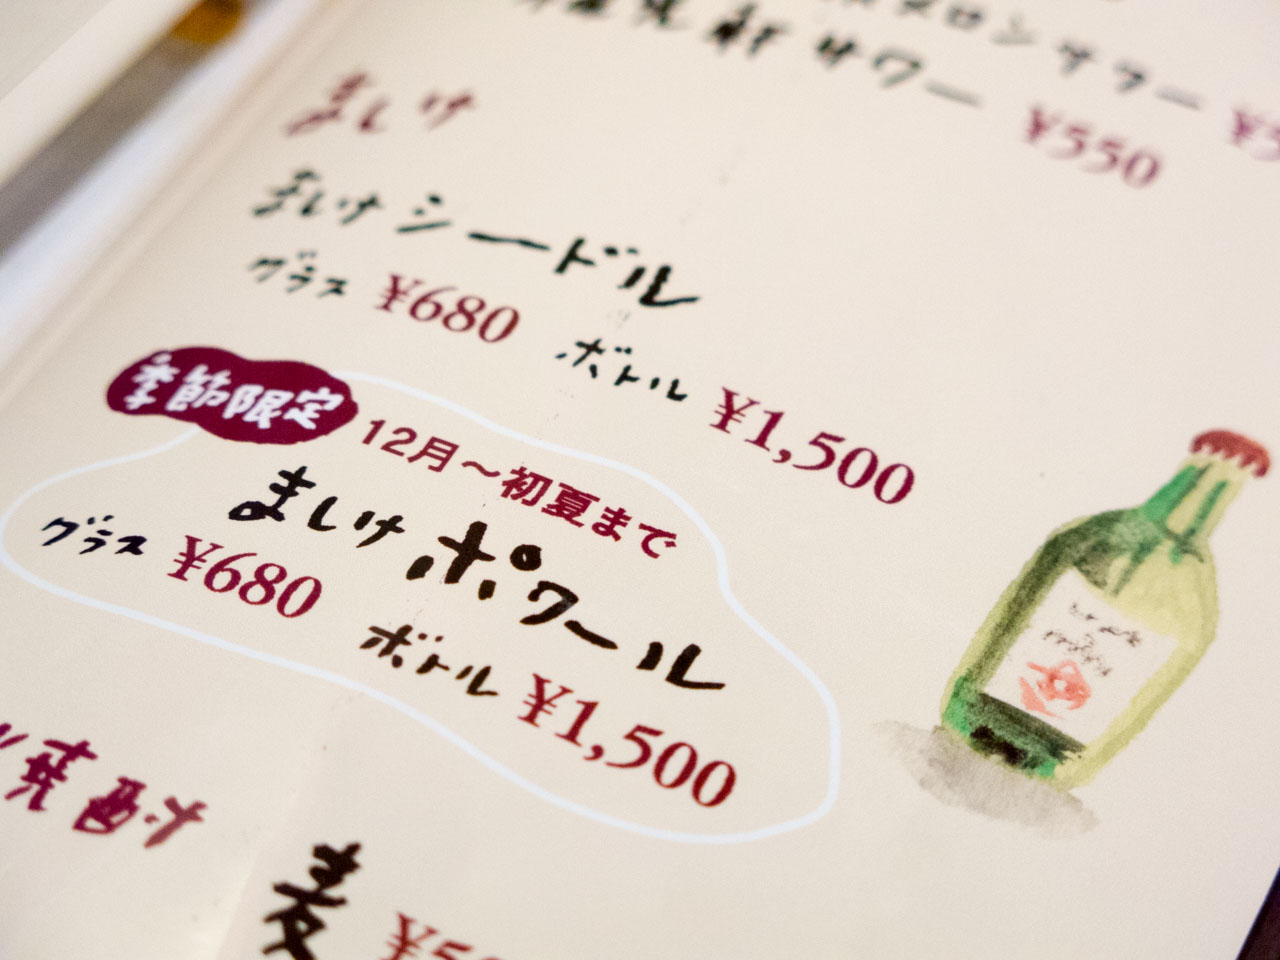 サワー ¥550
ましけ
ましけシードル
グラス ¥680 ボトル ¥1,500
季節限定 12月〜初夏まで
ましけポワール
グラス ¥680 ボトル ¥1,500
焼酎
麦